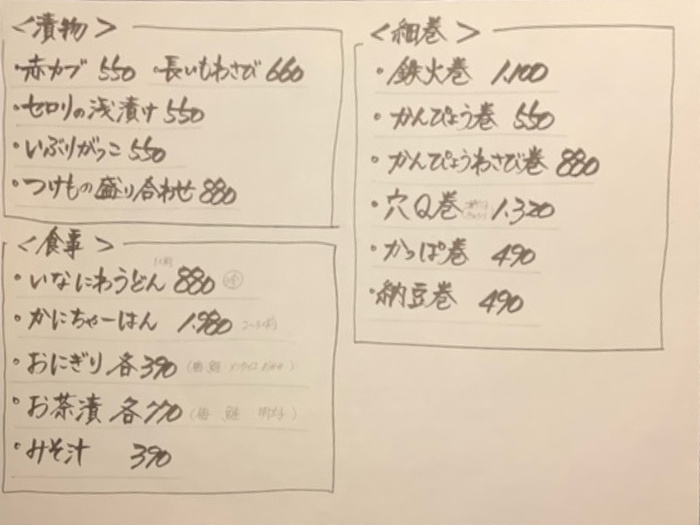 <漬物>
・赤カブ 550 ・長いもわさび 660
・セロリの浅漬け 550
・いぶりがっこ 550
・つけもの盛り合わせ 880
<食事>
・いなにわうどん 880 冷
・かにちゃーはん 1.980
・おにぎり 各390 (梅 鮭
・お茶漬 各770 (梅 鮭 明太子)
・みそ汁 390
<細巻>
・鉄火巻 1.100
・かんぴょう巻 550
・かんぴょうわさび巻 880
・穴Q巻 1.320
・かっぱ巻 490
・納豆巻 490